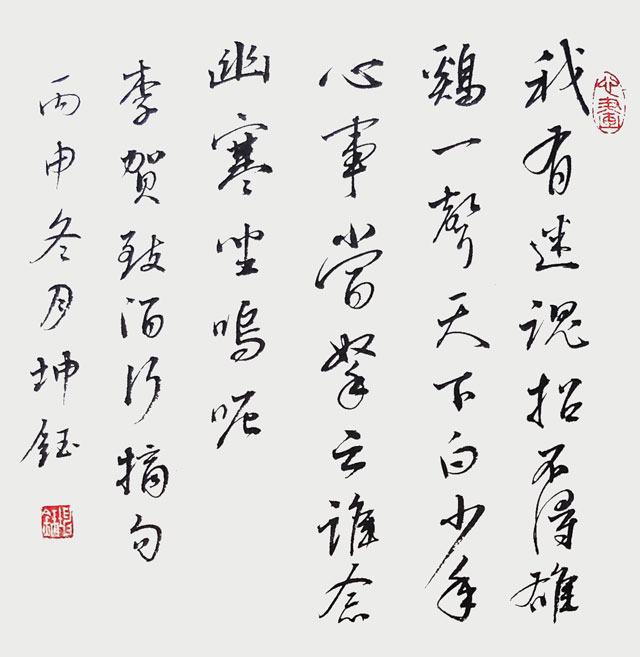 心畫
我有迷魂招不得雄
鷄一聲天下白少年
心事當拏云誰念
幽寒坐嗚呃
李賀致酒行摘句
丙申冬月坤鈺